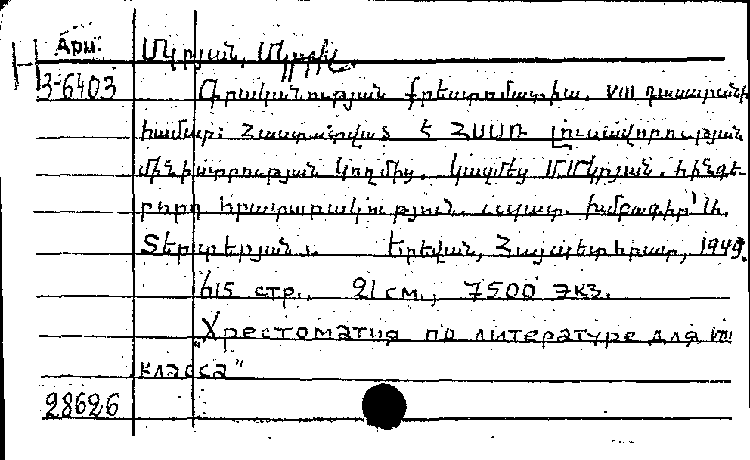 Арм.
Մկրյան, Մկրտիչ.
3-6403
Գրականության քրեստոմատիա. VIII դասարանի
համար: Հաստատված է ՀՍՍՌ լուսավորության
մինիստրության կողմից. Կազմեց Մ.Մկրյան. հինգե-
րորդ հրատարակություն. պատ. խմբագիր՝ Ա.
Տերտերյան. Երևան, Հայպետհրատ, 1949.
615 стр., 21 см., 7500 экз.
„Хрестоматия по литературе для VIII
класса"
28626